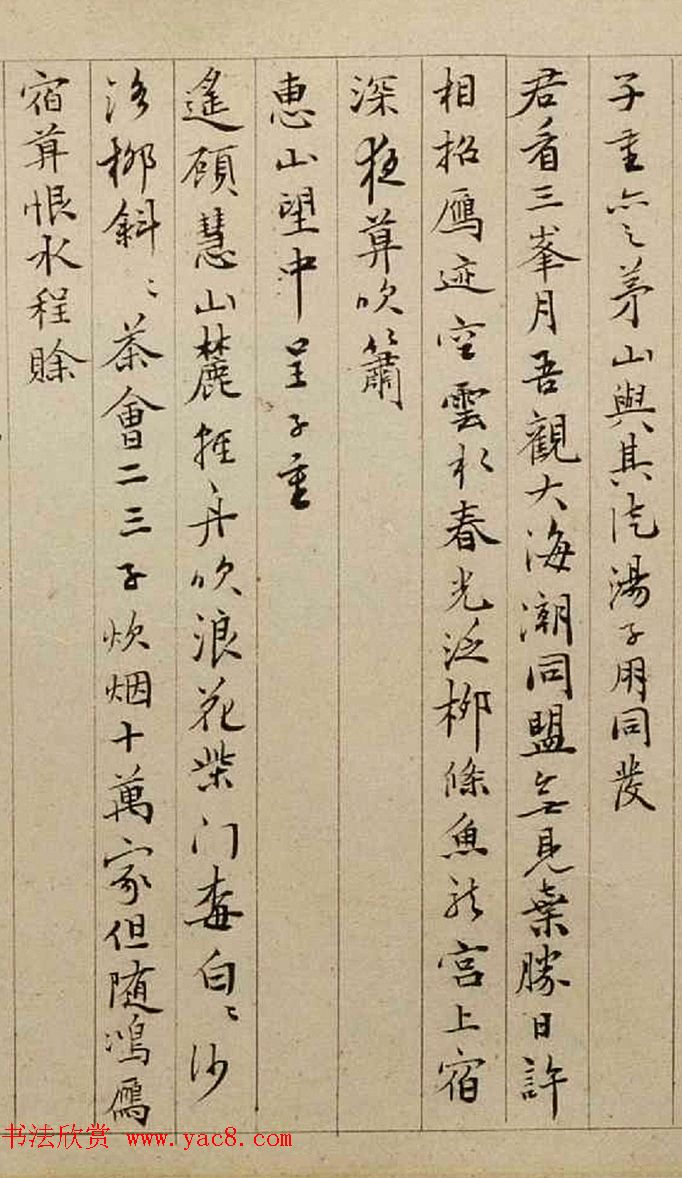 子重亦之茅山與其湯子用同發
君看三峯月吾觀大海潮同盟無見棄勝日許
相招鴈迹空雲水春光泛柳條魚龍宮上宿
深夜莫吹簫
惠山望中呈子重
遙顧慧山麓舟吹浪花柴門白〻沙
洛柳斜〻茶會二三子炊烟十萬家但随鴻鴈
宿莫恨水程賒
书法欣赏 www.yac8.com